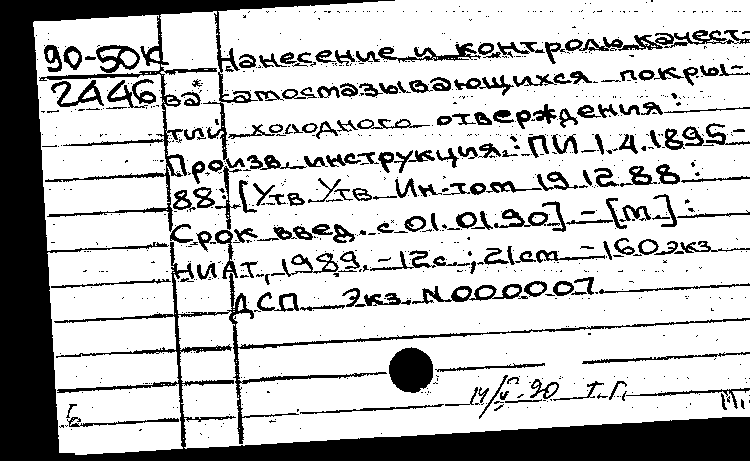 90-50К
2446
Нанесение и контроль качест-
ва самосмазывающихся покры-
тий холодного отверждения:
Произв. инструкция.: ПИ 1.4.1895-
88: [Утв. Утв. Ин-том 19.12.88:
Срок введ. с 01.01.90]. - [М.]:
НИАТ, 1989. - 12с.; 21см - 160экз
ДСП. Экз. N000007.
Б
14/V-90 Т.Г.
М.